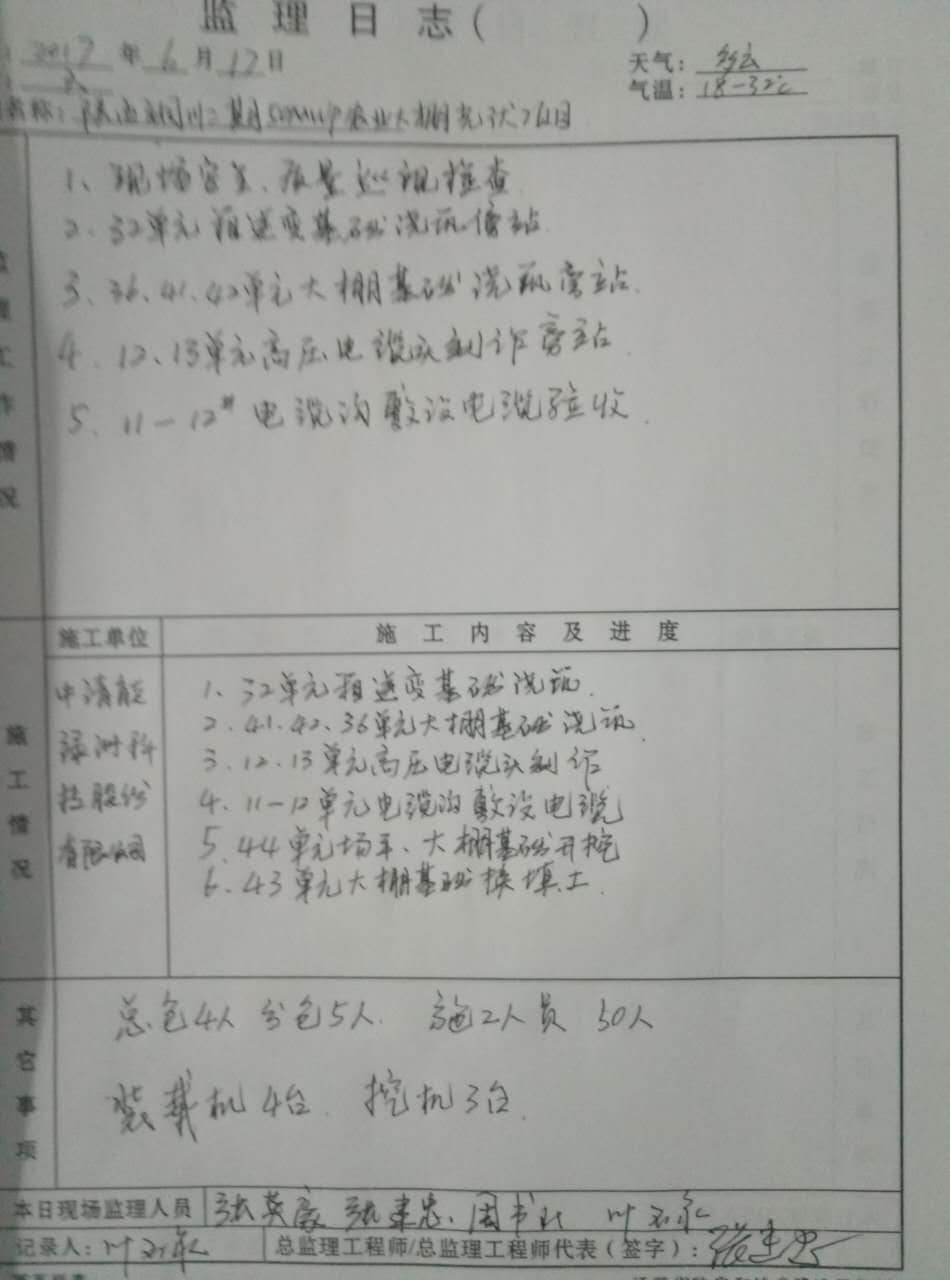 监理日志( )
2017年6月12日
天气：
气温：18-32℃
名称： 二期50MWP农业大棚光伏项目
监理工作情况
1、现场安全、质量巡视检查
2、32单元箱逆变基础浇筑傍站
3、36、41、42单元大棚基础浇筑旁站.
4、12、13单元高压电缆头制作旁站.
5、11-12# 电缆沟敷设电缆验收.
施工情况
施工单位 施工内容及进度
中清能绿洲科技股份有限公司
1、32单元箱逆变基础浇筑.
2、41、42、36单元大棚基础浇筑.
3、12、13单元高压电缆头制作
4、11-12单元电缆沟敷设电缆
5、44单元场平、大棚基础开挖
6、43单元大棚基础换填土.
其它事项
总包4人 分包5人. 施工人员 30人
装载机4台. 挖机3台.
本日现场监理人员 张英豪 张建忠、周书
记录人：叶 总监理工程师/总监理工程师代表(签字)：张建忠